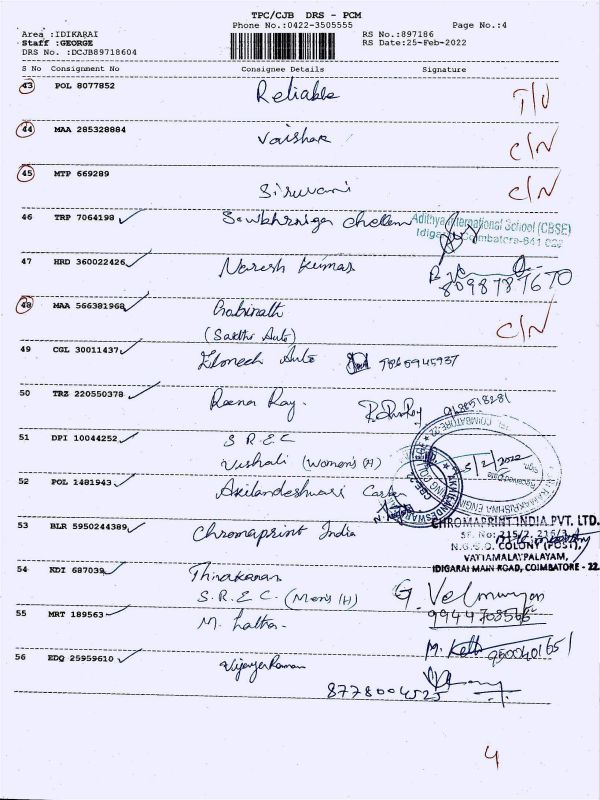 TPC/CJB DRS - PCM
Phone No.:0422-3505555 Page No.:4
Area :IDIKARAI RS No.:897186
Staff :GEORGE RS Date:25-Feb-2022
DRS No. :DCJB89718604
S No Consignment No Consignee Details Signature
43 POL 8077852 Reliable T/U
44 MAA 285328884 Vaishak C/N
45 MTP 669289 Siruvani C/N
46 TRP 7064198 Adithya International School (CBSE)
Coimbatore-641 022
47 HRD 360022426 Naresh Kumar
8098787670
48 MAA 566381968 C/N
(Sakthi Auto)
49 CGL 30011437 Auto 9865945937
50 TRZ 220550378 Reena Ray.
51 DPI 10044252 S R E C
Vishali (Women's (H)
52 POL 1481943 Akilandeshwari
53 BLR 5950244389 Chromaprint India
CHROMAPRINT INDIA PVT. LTD.
SF. No: 215/2, 215/3
N.G.G.O. COLONY (POST),
VATTAMALAPALAYAM,
IDIGARAI MAIN ROAD, COIMBATORE - 22.
54 KDI 687039 Thinakaran
S.R.E.C. (Men's (H) G. Velmurugan
55 MRT 189563 M. Latha.
56 EDQ 25959610 Vijayaraman
8778004525
4